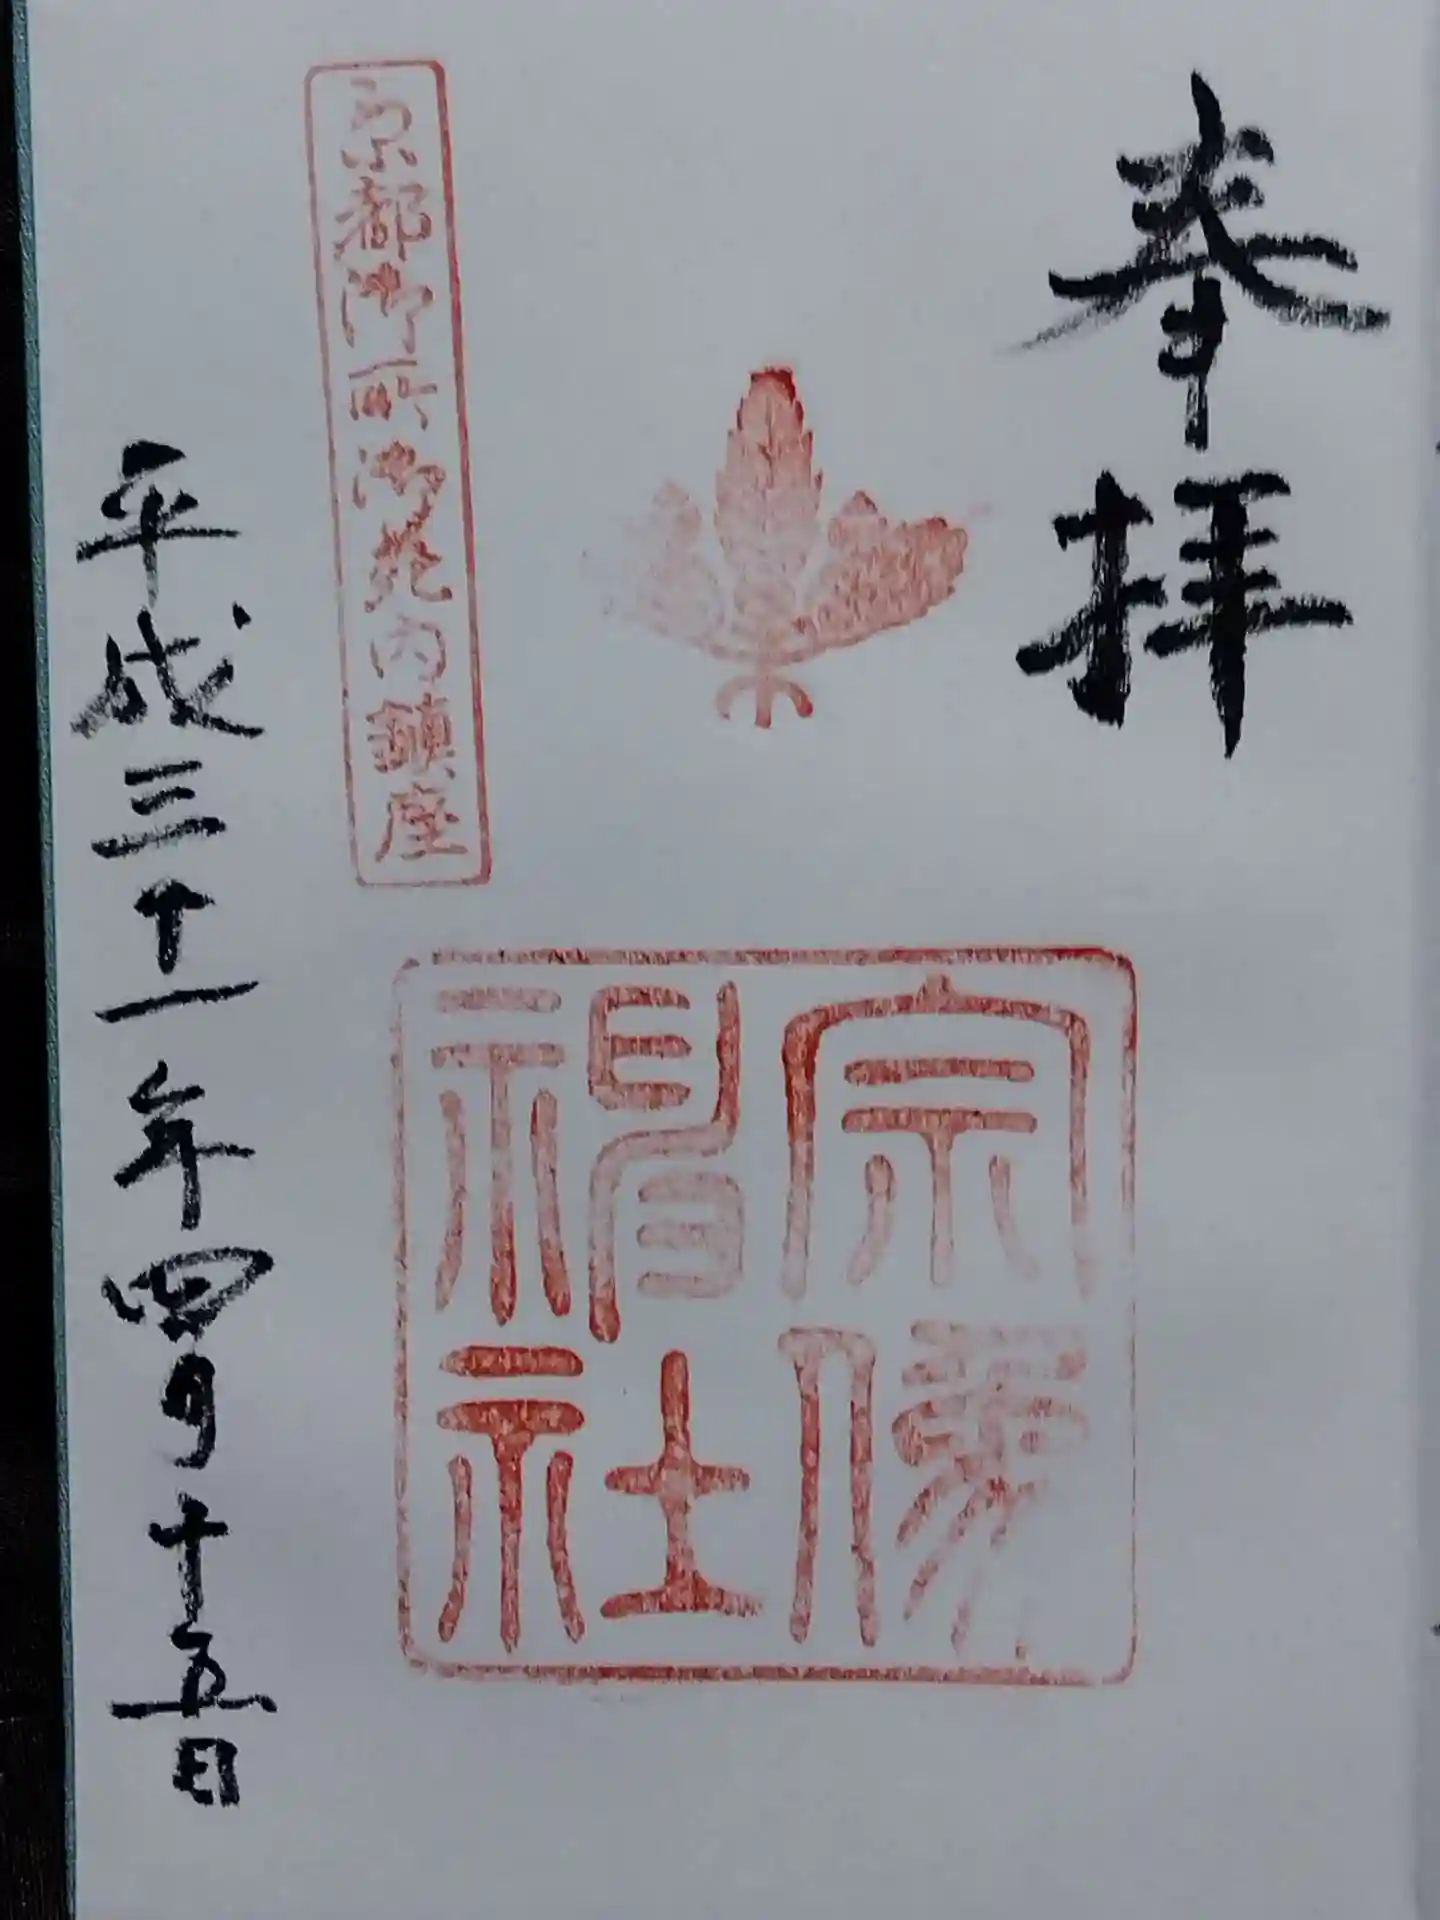 奉拝
宗像神社
京都御所御苑内鎮座
平成三十一年四月十五日